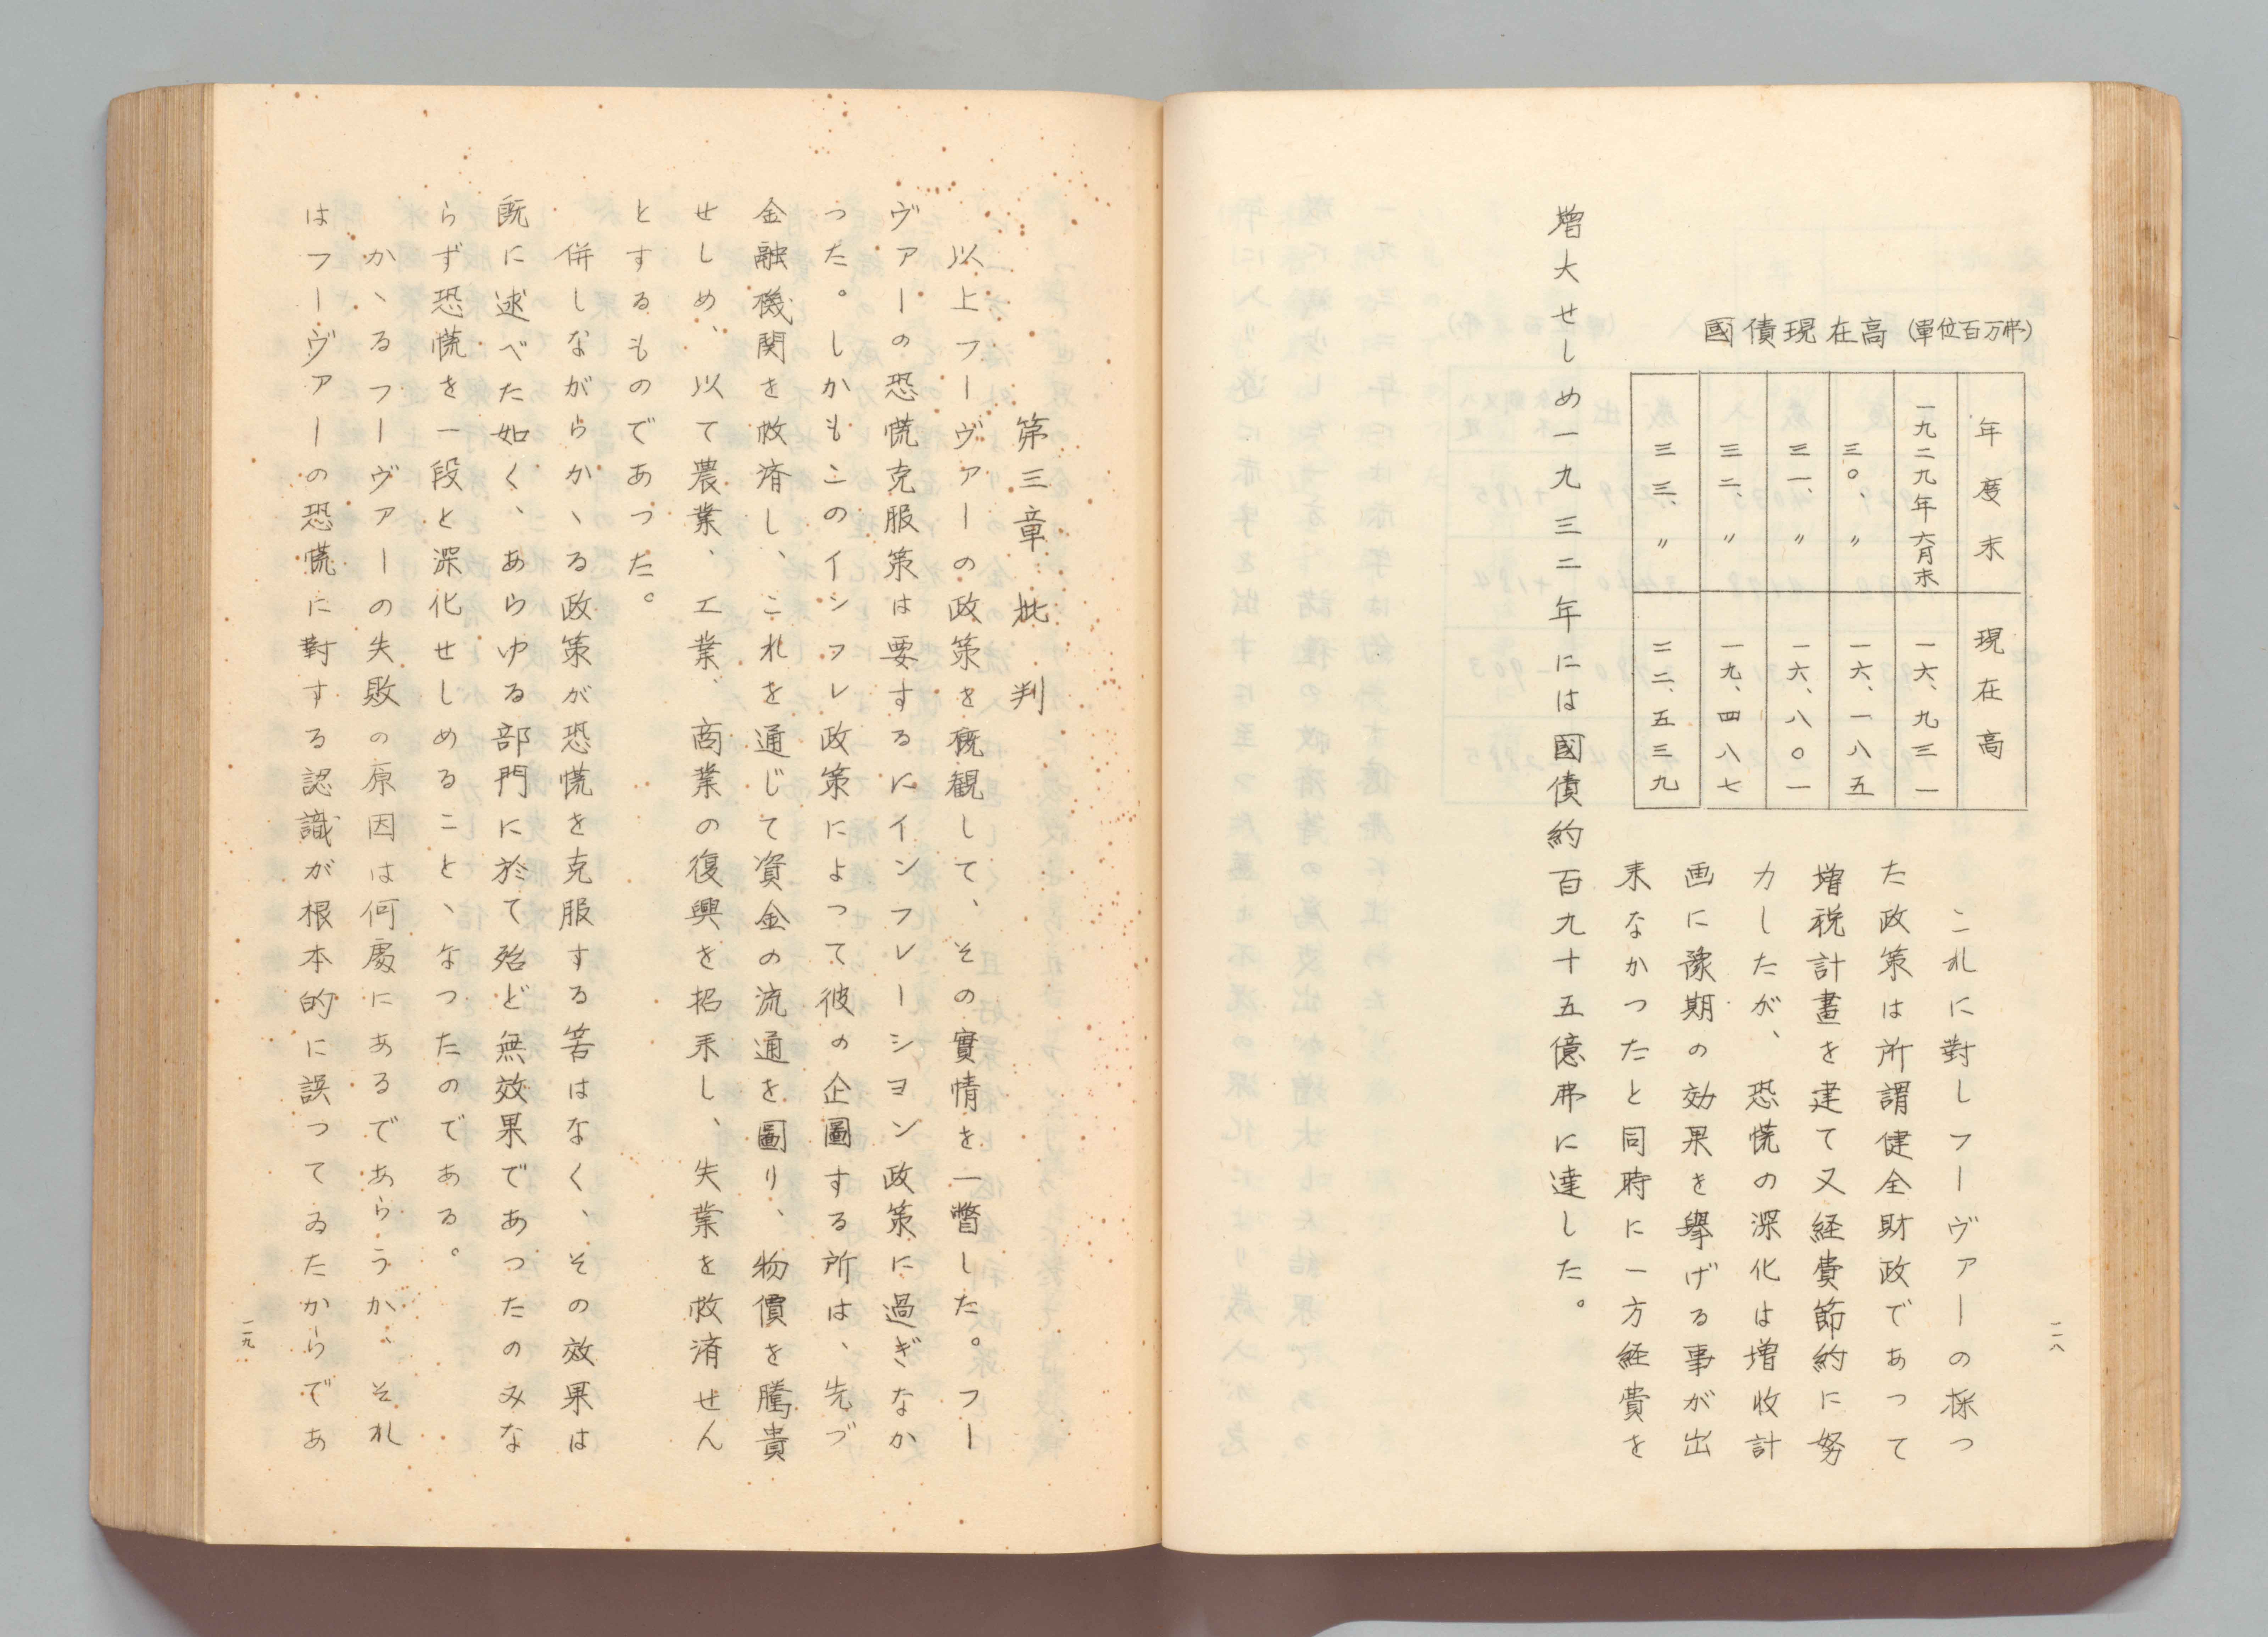 二八
國債現在高(單位百万弗)
年度末 現在高
一九二九年六月末 一六、九三一
三〇、〃 一六、一八五
三一、〃 一六、八〇一
三二、〃 一九、四八七
三三、〃 二二、五三九
これに對しフーヴァーの採つ
た政策は所謂健全財政であつて
増税計畫を建て又経費節約に努
力したが、恐慌の深化は増收計
画に豫期の効果を擧げる事が出
来なかつたと同時に一方経費を
増大せしめ一九三二年には國債約百九十五億弗に達した。
第三章 批判
以上フーヴァーの政策を概観して、その實情を一瞥した。フー
ヴァーの恐慌克服策は要するにインフレーシヨン政策に過ぎなか
つた。しかもこのインフレ政策によつて彼の企圖する所は、先づ
金融機関を救済し、これを通じて資金の流通を圖り、物價を騰貴
せしめ、以て農業、工業、商業の復興を招来し、失業を救済せん
とするものであつた。
併しながらかゝる政策が恐慌を克服する筈はなく、その效果は
既に述べた如く、あらゆる部門に於て殆ど無效果であつたのみな
らず恐慌を一段と深化せしめること、なつたのである。
かゝるフーヴァーの失敗の原因は何處にあるであらうか、それ
はフーヴァーの恐慌に對する認識が根本的に誤つてゐたからであ
二九